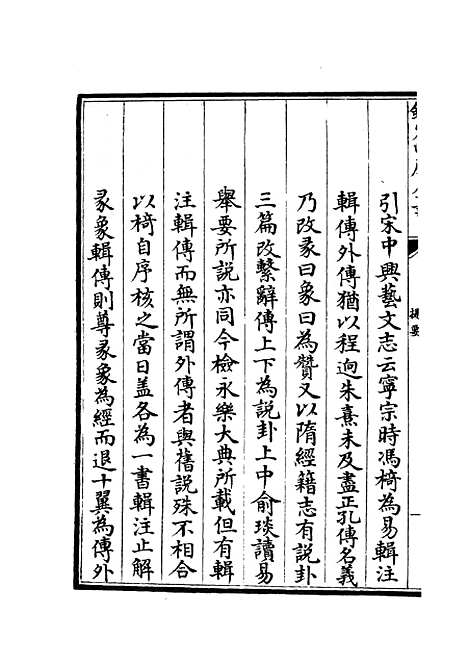 提要
引宋中興藝文志云寧宗時馮椅為易輯注
輯傳外傳猶以程迥朱熹未及盡正孔傳名義
乃改彖曰象曰為贊又以隋經籍志有說卦
三篇改繫辭傳上下為說卦上中俞琰讀易
舉要所說亦同今檢永樂大典所載但有輯
注輯傳而無所謂外傳者與舊說殊不相合
以椅自序核之當日盖各為一書輯注止解
彖象輯傳則尊彖象為經而退十翼為傳外